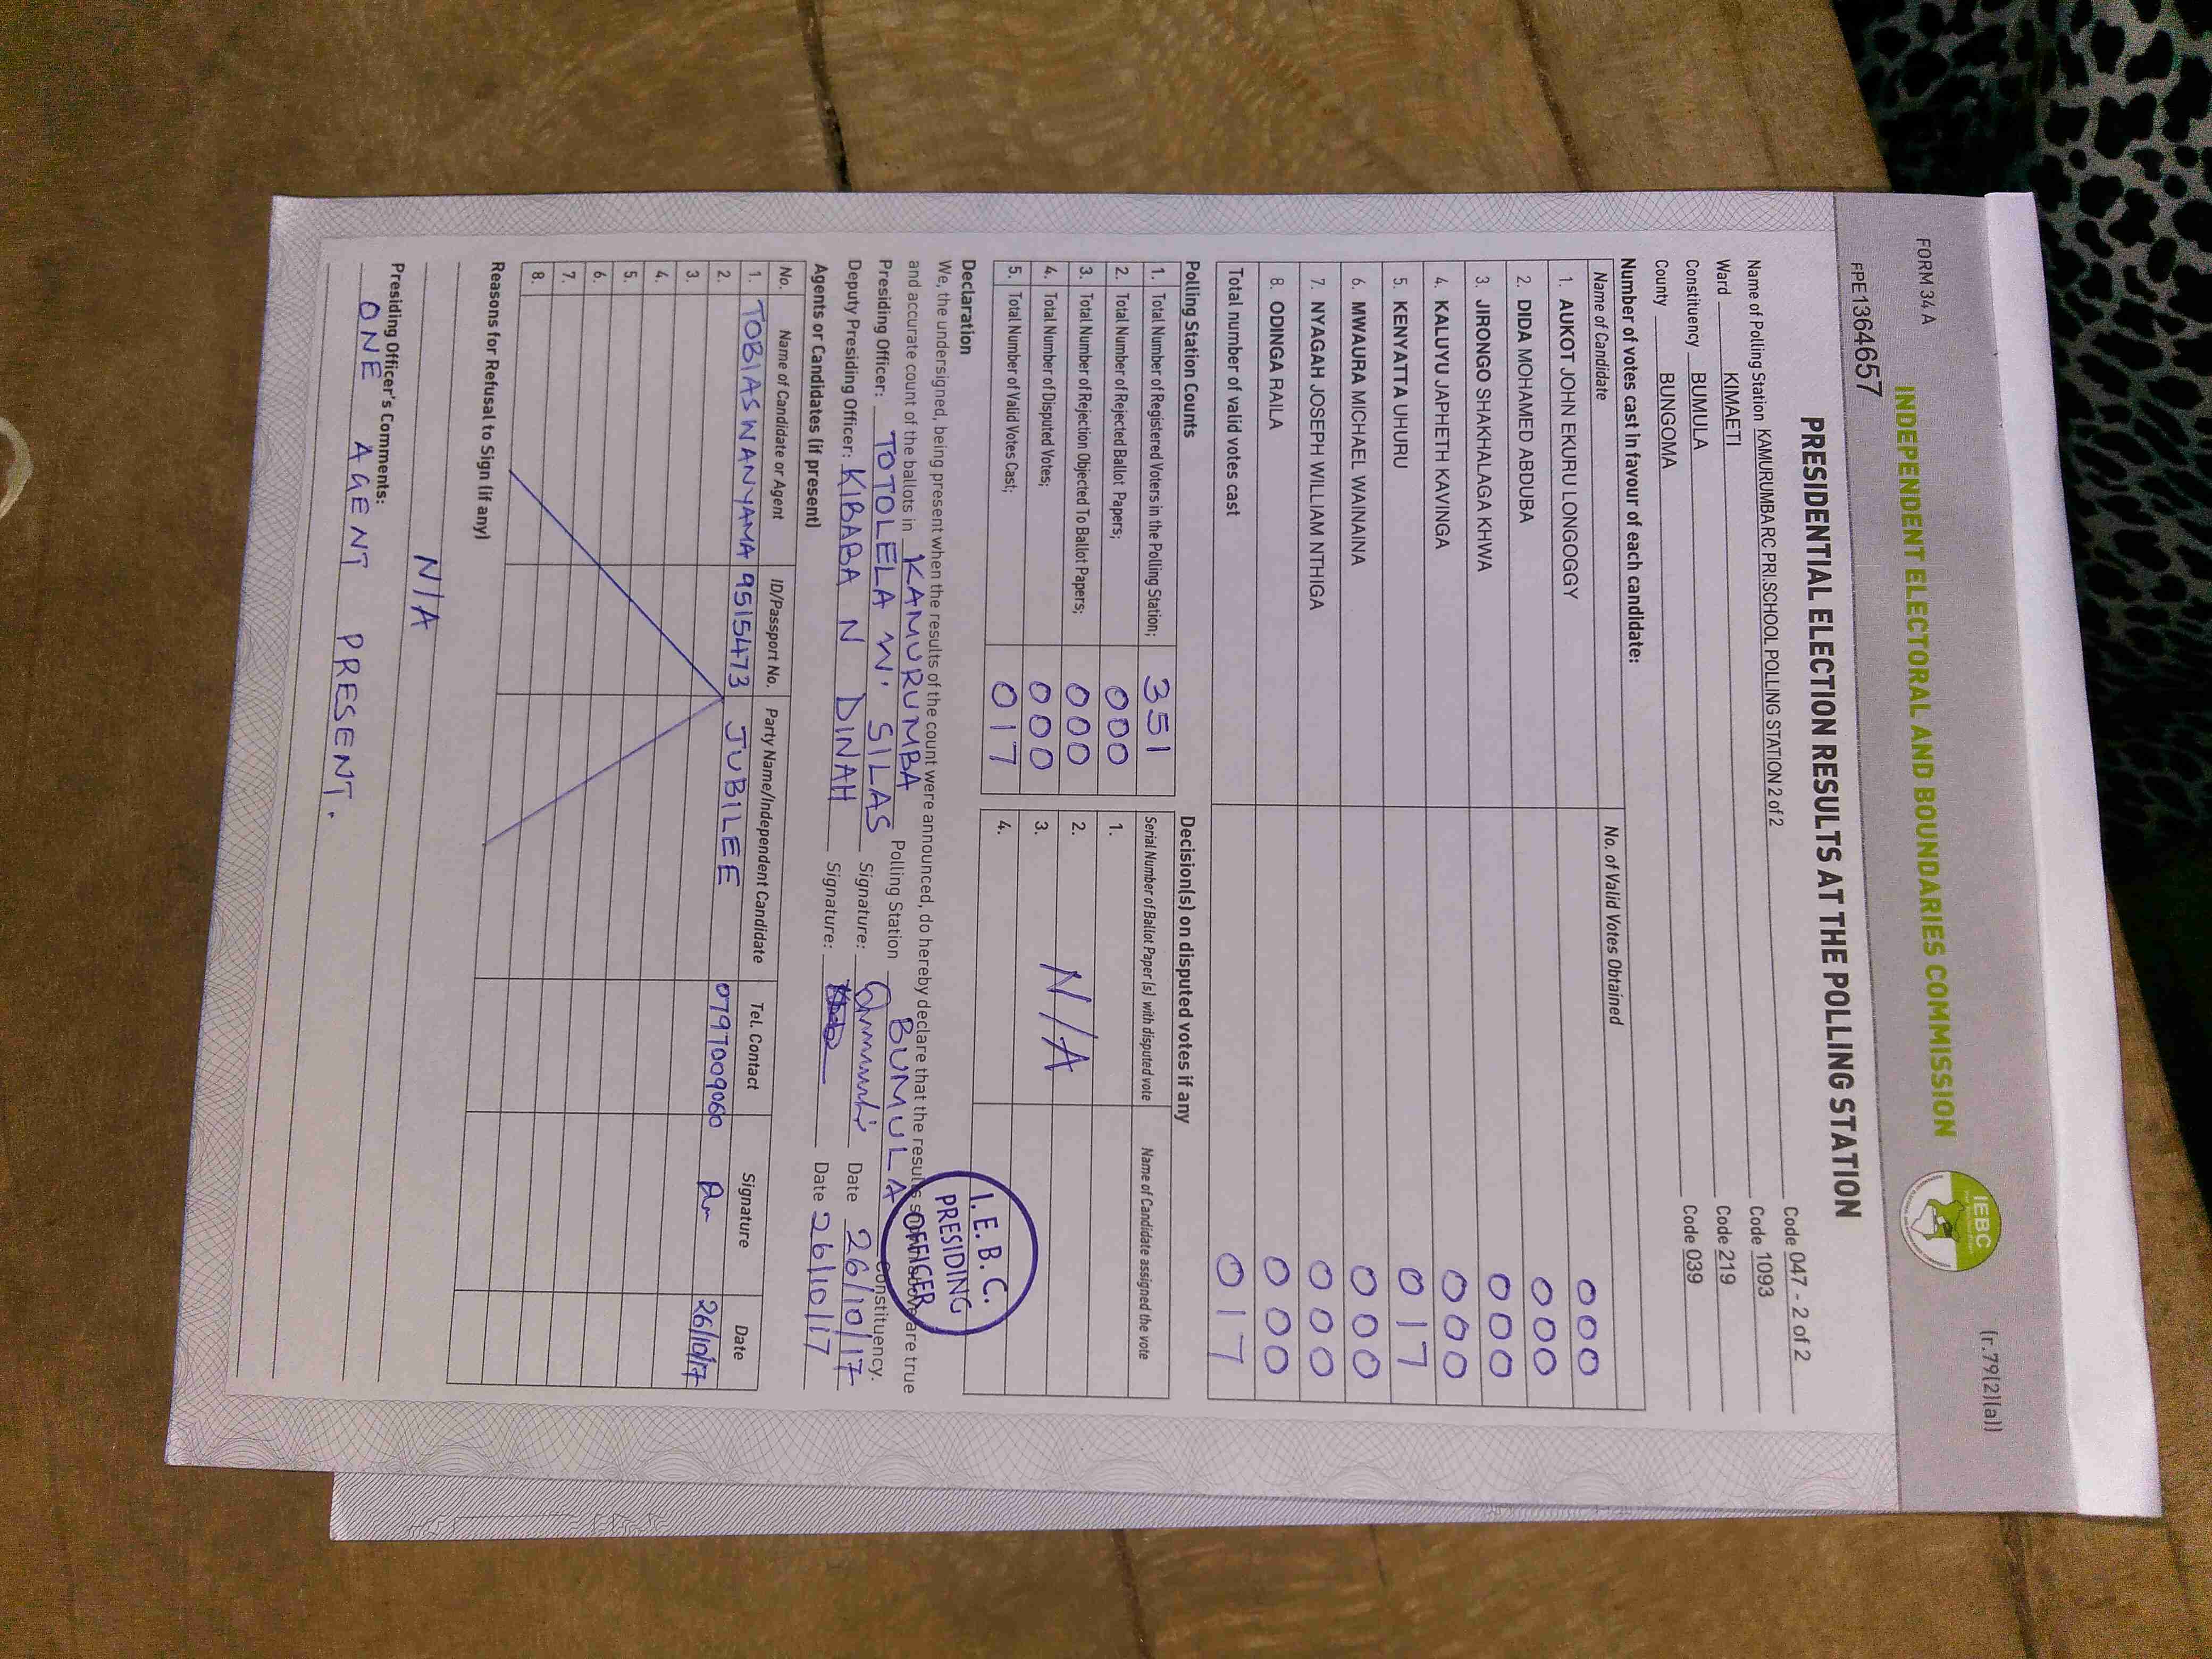 FORM 34 A
(r.79(2)(a))
INDEPENDENT ELECTORAL AND BOUNDARIES COMMISSION
IEBC
FPE1364657
PRESIDENTIAL ELECTION RESULTS AT THE POLLING STATION
Name of Polling Station KAMURUMBA RC PRI.SCHOOL POLLING STATION 2 of 2 Code 047 - 2 of 2
Ward KIMAETI Code 1093
Constituency BUMULA Code 219
County BUNGOMA Code 039
Number of votes cast in favour of each candidate:
Name of Candidate No. of Valid Votes Obtained
1. AUKOT JOHN EKURU LONGOGGY 000
2. DIDA MOHAMED ABDUBA 000
3. JIRONGO SHAKHALAGA KHWA 000
4. KALUYU JAPHETH KAVINGA 000
5. KENYATTA UHURU 017
6. MWAURA MICHAEL WAINAINA 000
7. NYAGAH JOSEPH WILLIAM NTHIGA 000
8. ODINGA RAILA 000
Total number of valid votes cast 017
Polling Station Counts
1. Total Number of Registered Voters in the Polling Station; 351
2. Total Number of Rejected Ballot Papers; 000
3. Total Number of Rejection Objected To Ballot Papers; 000
4. Total Number of Disputed Votes; 000
5. Total Number of Valid Votes Cast; 017
Decision(s) on disputed votes if any
Serial Number of Ballot Paper(s) with disputed vote Name of Candidate assigned the vote
1.
2.
3.
4.
N/A
Declaration
We, the undersigned, being present when the results of the count were announced, do hereby declare that the results shown above are true
and accurate count of the ballots in KAMURUMBA Polling Station BUMULA Constituency.
Presiding Officer: TOTOLELA W. SILAS Signature: Date 26/10/17
Deputy Presiding Officer: KIBABA N DINAH Signature: Date 26/10/17
I.E.B.C.
PRESIDING
OFFICER
Agents or Candidates (if present)
No. Name of Candidate or Agent ID/Passport No. Party Name/Independent Candidate Tel. Contact Signature Date
1. TOBIAS WANYAMA 9515473 JUBILEE 0797009060 26/10/17
2.
3.
4.
5.
6.
7.
8.
Reasons for Refusal to Sign (if any)
N/A
Presiding Officer's Comments:
ONE AGENT PRESENT.